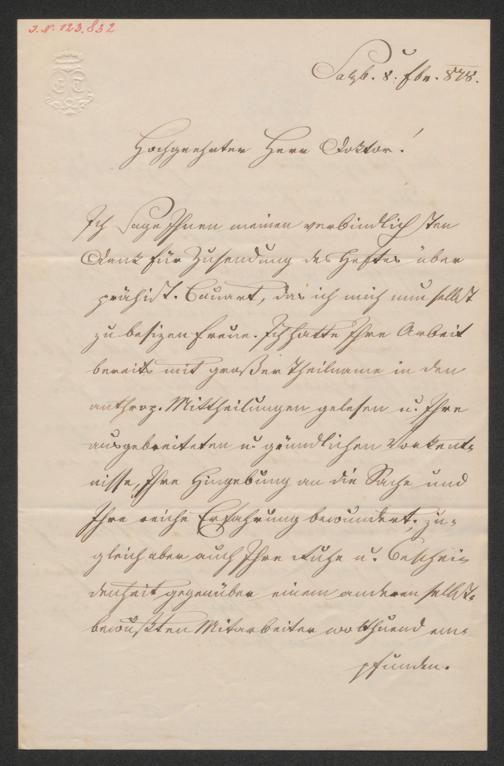 J. N. 123.832
Salzb. 8. Fbr. 878.
Hochgeehrter Herr Doktor!
Ich sage Ihnen meinen verbindlichsten
Dank für Zusendung des Heftes über
prähist. Bauart, das ich mich nun selbst
zu besizen freue. Ich hatte Ihre Arbeit
bereits mit großer Theilname in den
anthrop. Mittheilungen gelesen u. Ihre
ausgebreiteten u. gründlichen Vorkent-
nisse, Ihre Hingebung an die Sache und
Ihre reiche Erfahrung bewundert, zu-
gleich aber auch Ihre Ruhe u. Beschei-
denheit gegenüber einem anderen selbst-
bewußten Mitarbeiter wolthuend em-
pfunden.